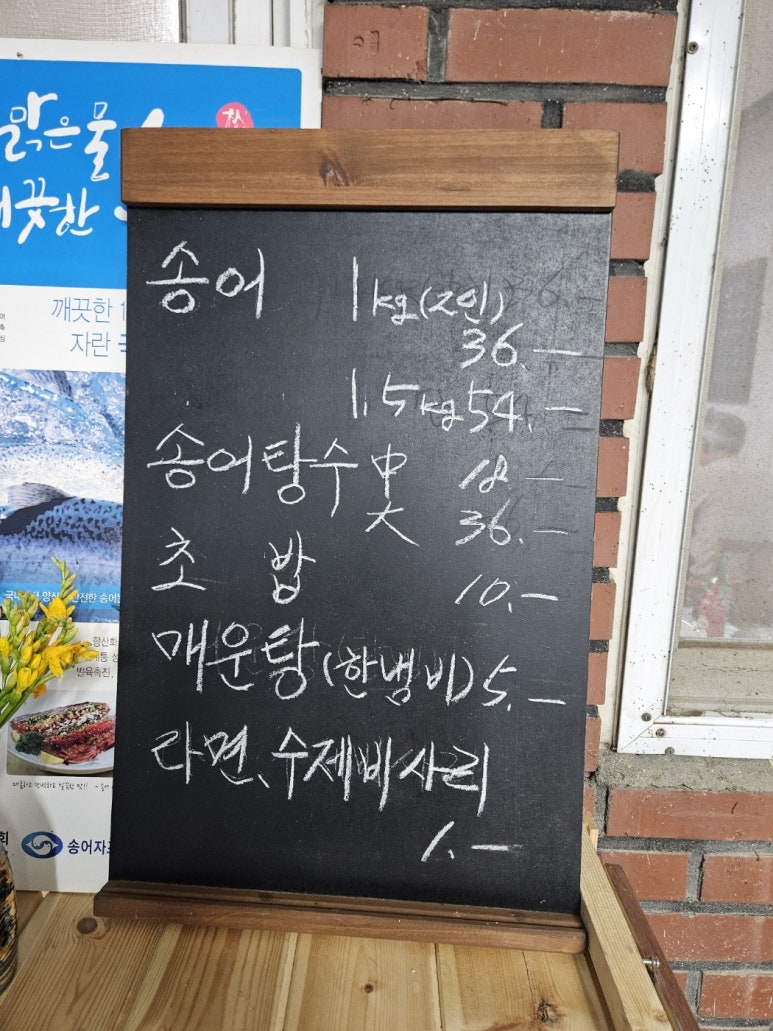 맑은물
끗한
깨끗한 1
자란
송어 1kg(2인)
36.—
1.5kg 54.—
송어탕수 中 18.—
大 36.—
초 밥 10.—
매운탕(한냄비) 5.—
라면、수제비사리
1.—
송어자